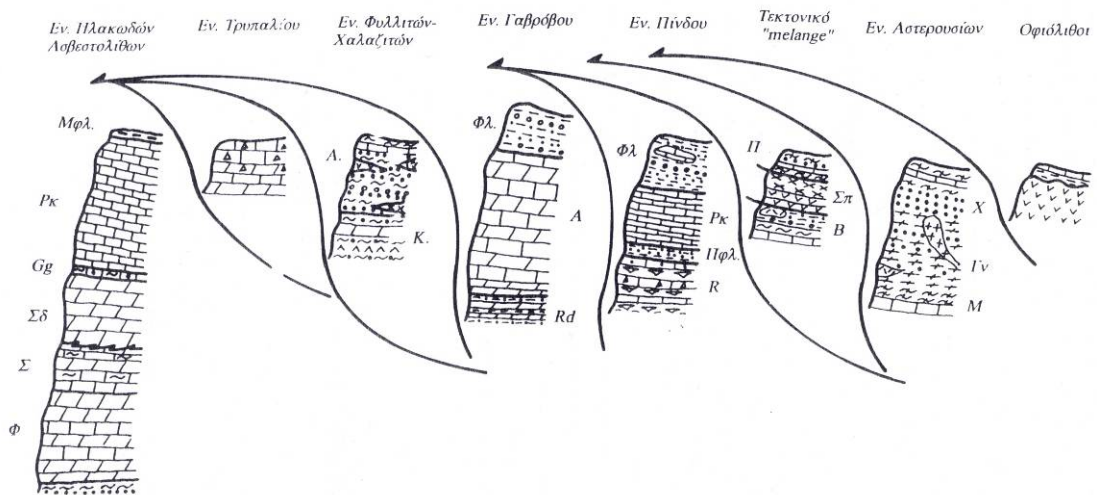 Εν. Πλακωδών
Ασβεστολίθων
Εν. Τρυπαλίου
Εν. Φυλλιτών-
Χαλαζιτών
Εν. Γαβρόβου
Εν. Πίνδου
Τεκτονικό
"melange"
Εν. Αστερουσίων
Οφιόλιθοι
Μφλ.
Ρκ
Gg
Σδ
Σ
Φ
Λ.
Κ.
Φλ.
Α
Rd
Φλ
Ρκ
Πφλ.
R
Π
Σπ
Β
Χ
Γν
Μ